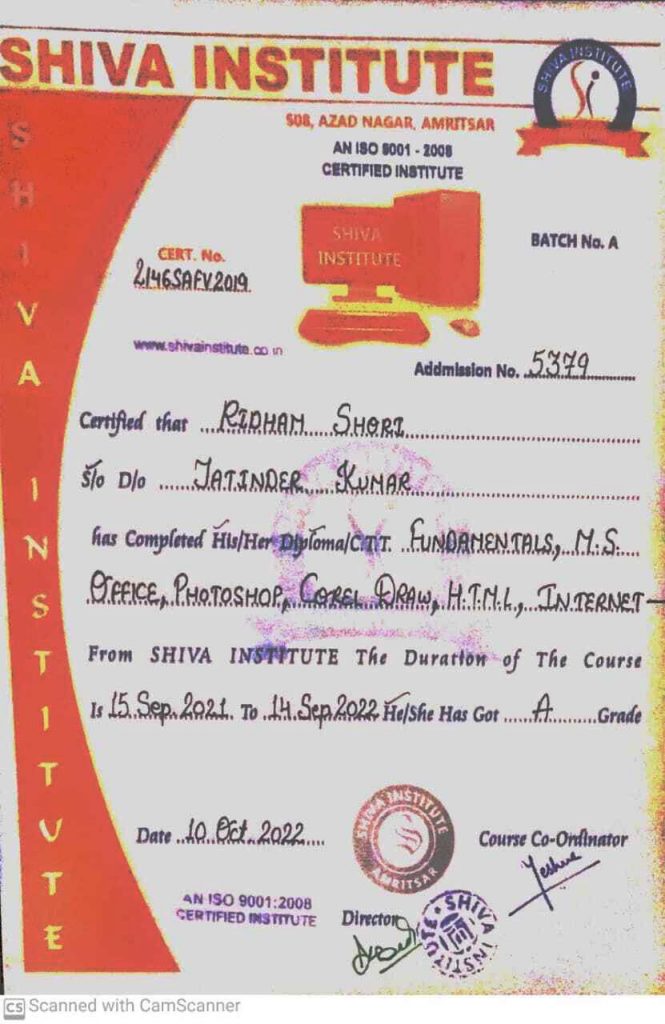 SHIVA INSTITUTE
SHIVA INSTITUTE
508, AZAD NAGAR, AMRITSAR
AN ISO 9001 - 2008
CERTIFIED INSTITUTE
SHIVA
INSTITUTE
BATCH No. A
CERT. No.
2146SAFV2019
www.shivainstitute.co.in
Addmission No. 5379
Certified that RIDHAM SHORI
S/o D/o JATINDER KUMAR
has Completed His/Her Diploma/C.T.T. FUNDAMENTALS, M.S.
OFFICE, PHOTOSHOP, COREL DRAW, H.T.M.L, INTERNET
From SHIVA INSTITUTE The Duration of The Course
Is 15 Sep. 2021 To 14 Sep. 2022 He/She Has Got A Grade
Date 10 Oct. 2022
SHIVA INSTITUTE
AMRITSAR
Course Co-Ordinator
AN ISO 9001:2008
CERTIFIED INSTITUTE
Director
SHIVA INSTITUTE
SHIVA INSTITUTE
CS Scanned with CamScanner